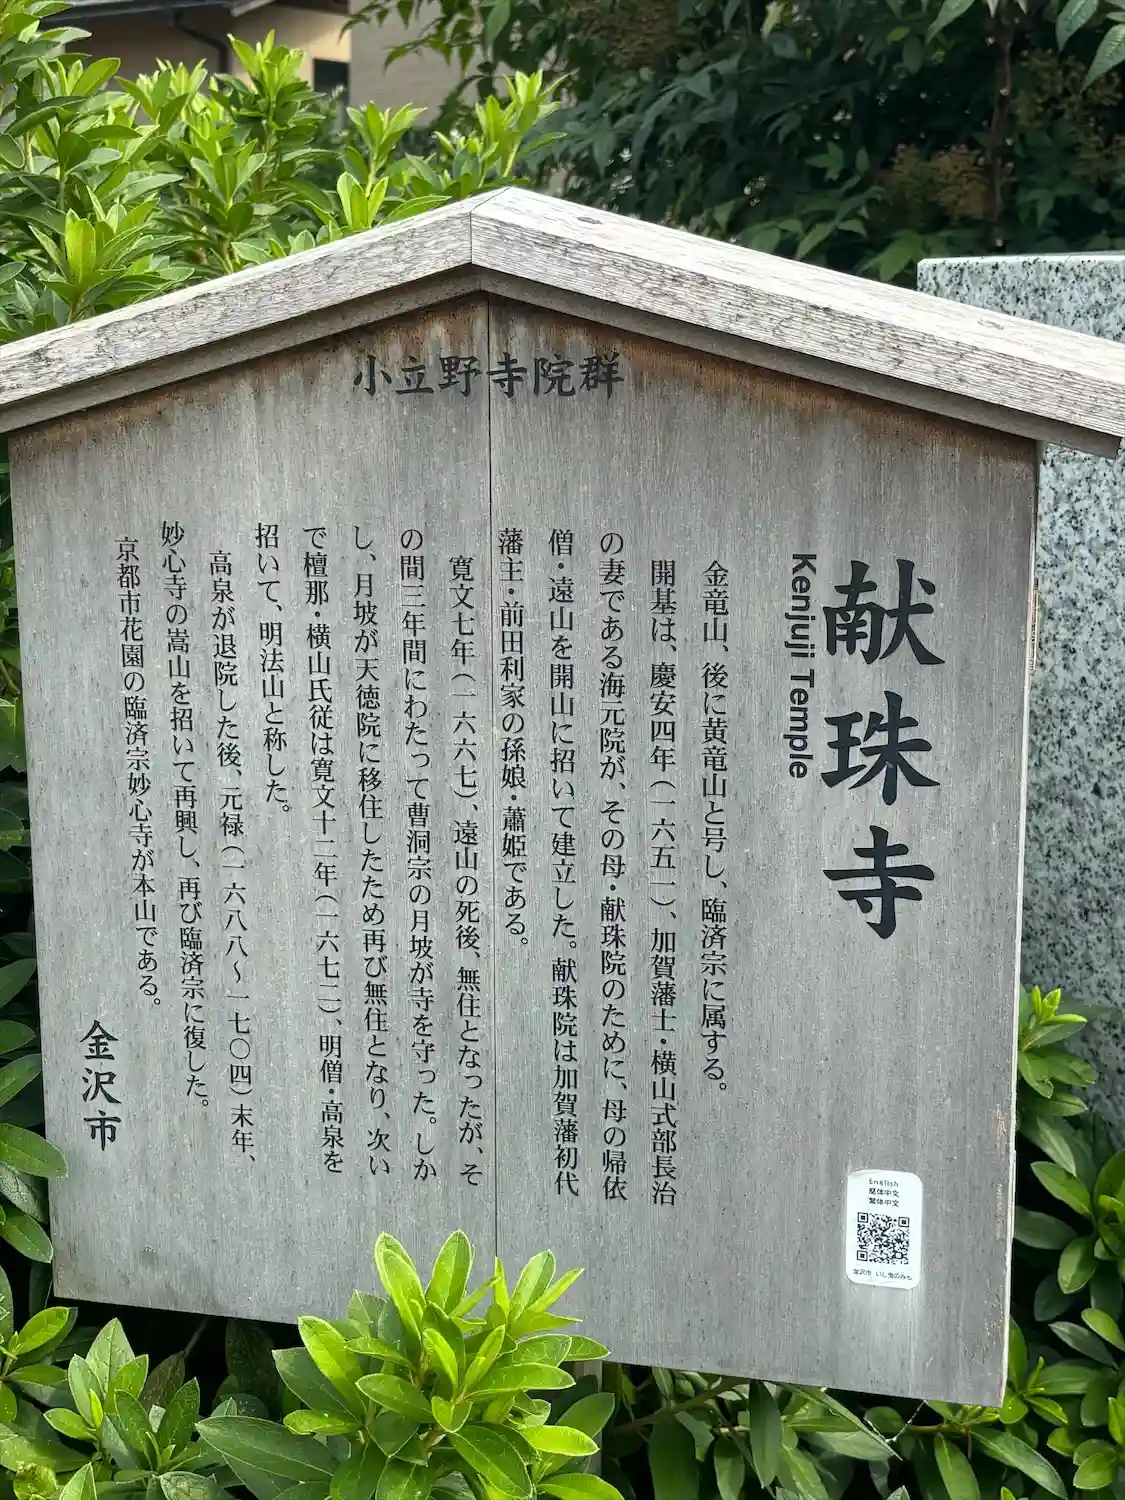 小立野寺院群
献珠寺
Kenjuji Temple
金竜山、後に黄竜山と号し、臨済宗に属する。
開基は、慶安四年（一六五一）、加賀藩士・横山式部長治
の妻である海元院が、その母・献珠院のために、母の帰依
僧・遠山を開山に招いて建立した。献珠院は加賀藩初代
藩主・前田利家の孫娘・蕭姫である。
寛文七年（一六六七）、遠山の死後、無住となったが、そ
の間三年間にわたって曹洞宗の月坡が寺を守った。しか
し、月坡が天徳院に移住したため再び無住となり、次い
で檀那・横山氏従は寛文十二年（一六七二）、明僧・高泉を
招いて、明法山と称した。
高泉が退院した後、元禄（一六八八～一七〇四）末年、
妙心寺の嵩山を招いて再興し、再び臨済宗に復した。
京都市花園の臨済宗妙心寺が本山である。
金沢市
English
簡体中文
繁体中文
金沢市 いし曳のみち